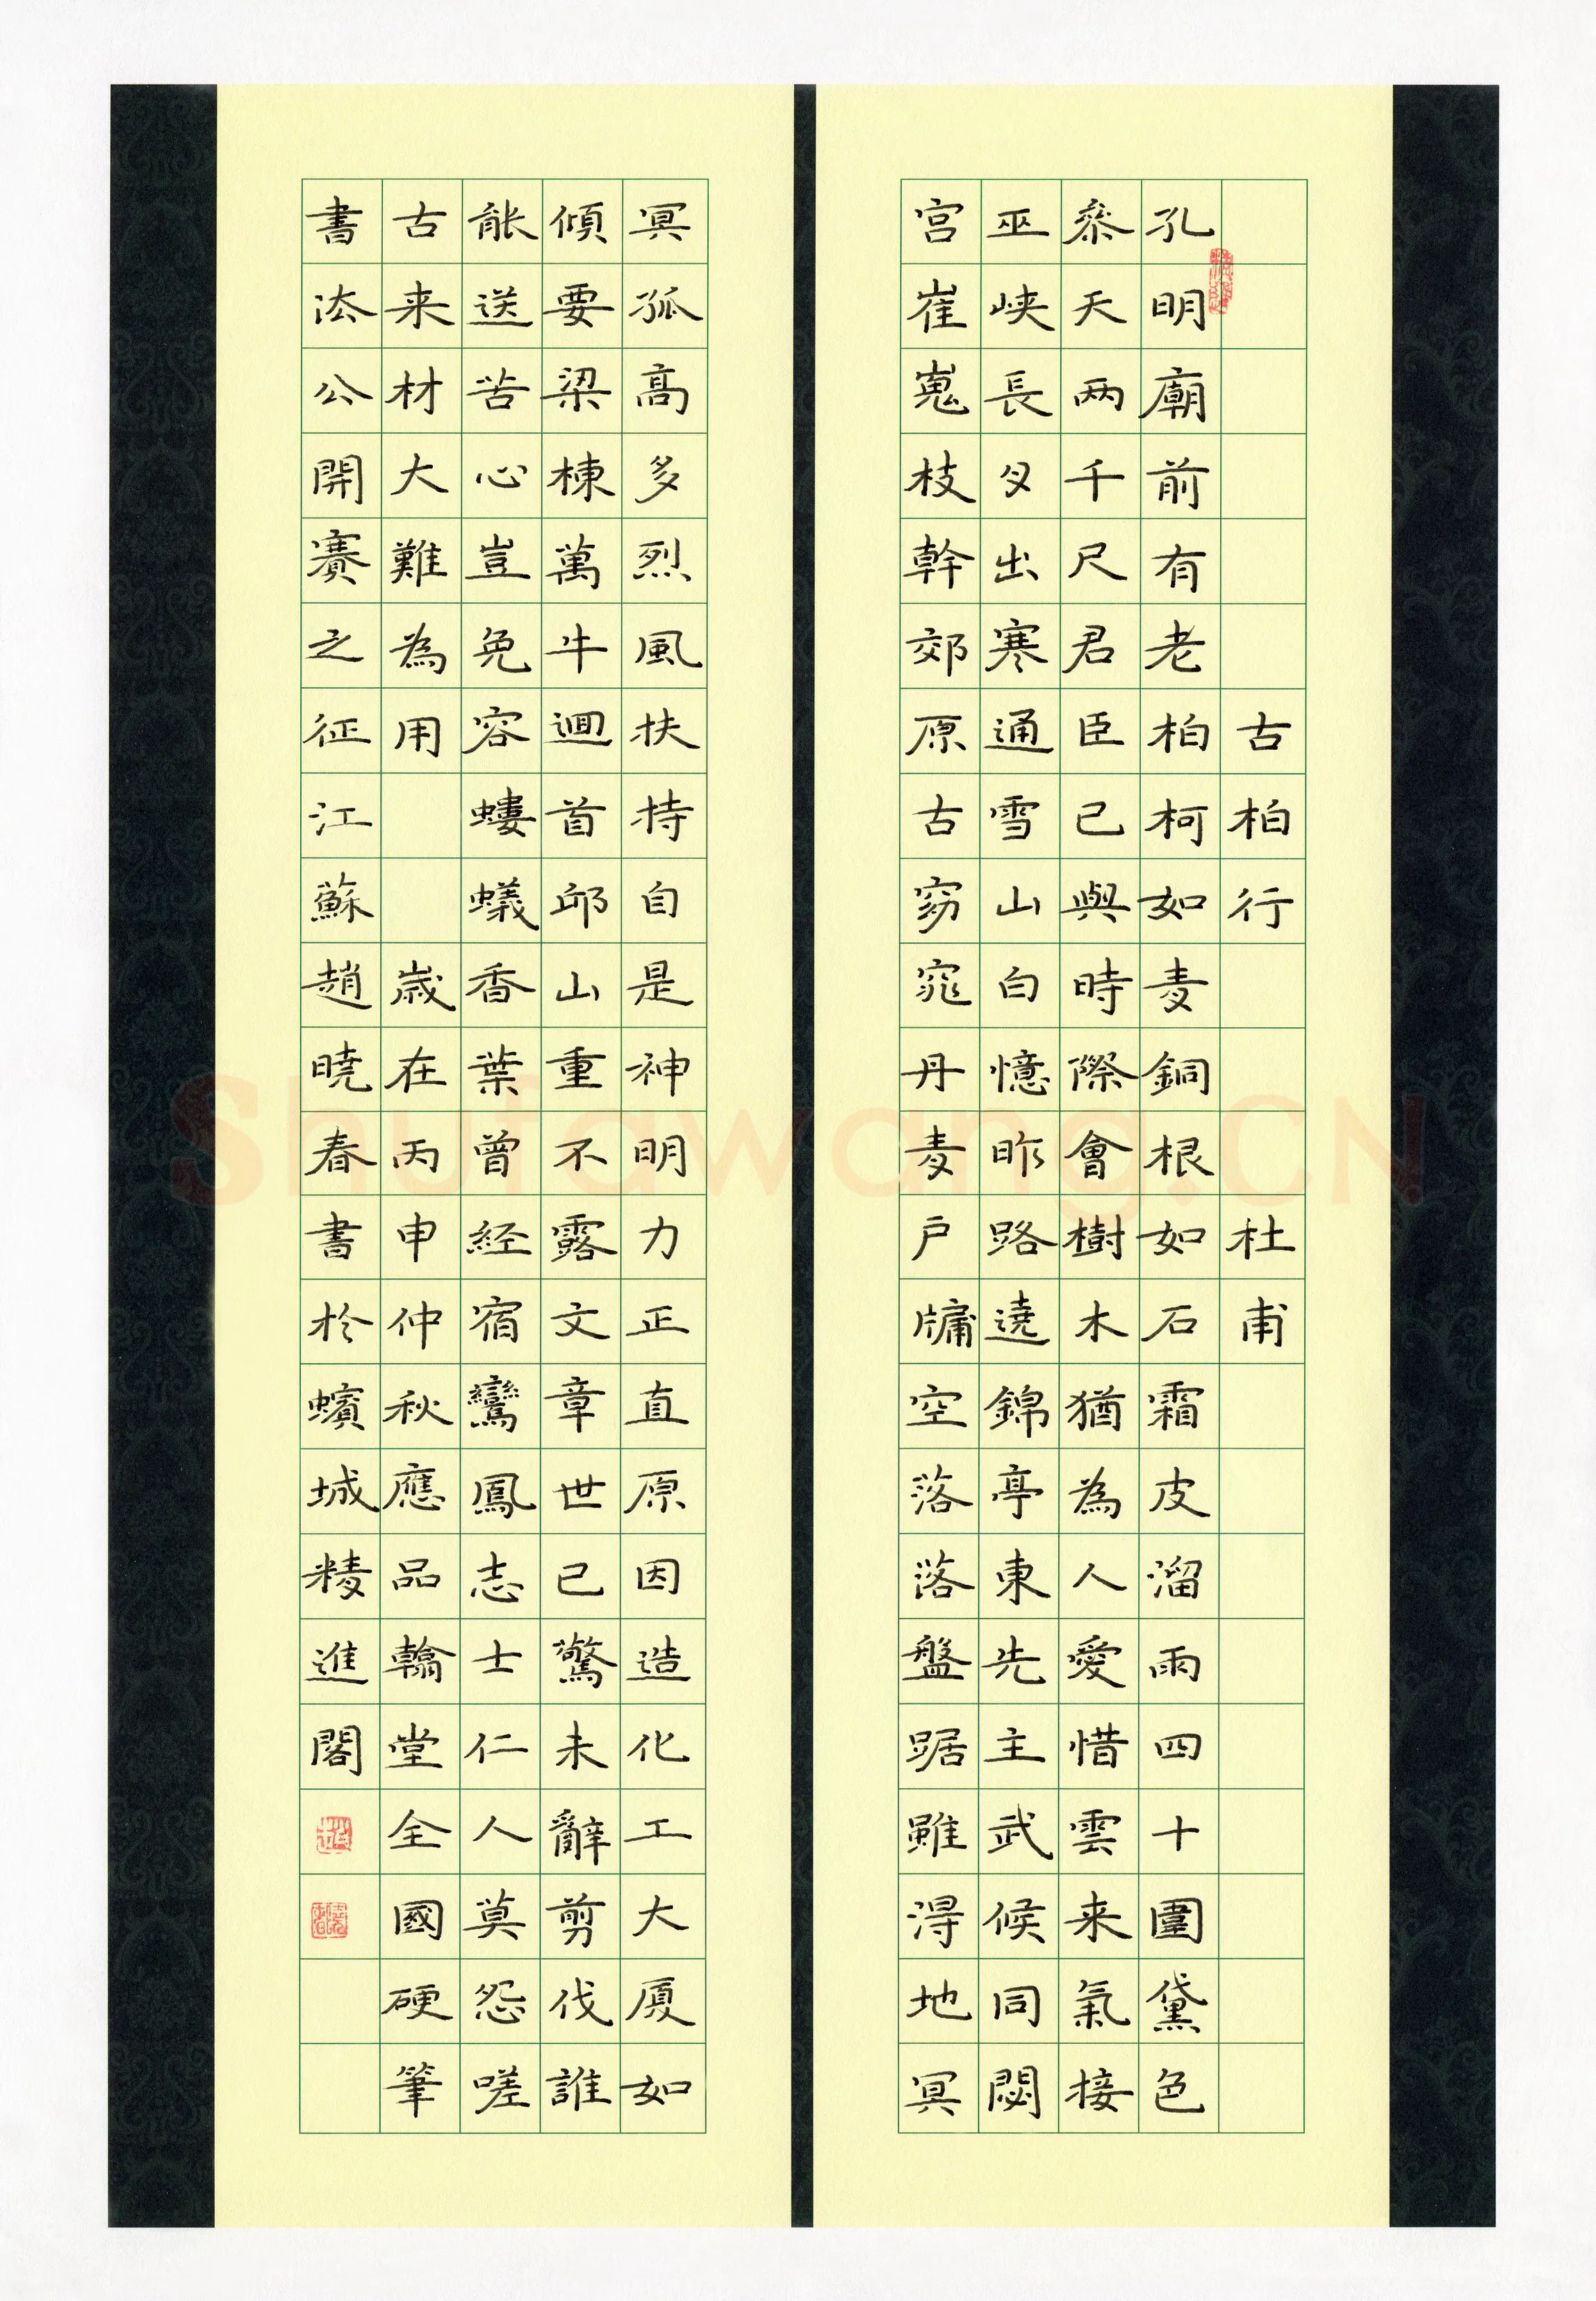 古柏行 杜甫
孔明廟前有老柏柯如青銅根如石霜皮溜雨四十圍黛色
參天兩千尺君臣已與時際會樹木猶為人愛惜雲来氣接
巫峡長月出寒通雪山白憶昨路遶錦亭東先主武侯同閟
宮崔嵬枝幹郊原古窈窕丹青户牖空落落盤踞雖得地冥
冥孤高多烈風扶持自是神明力正直原因造化工大厦如
傾要梁棟萬牛迴首邱山重不露文章世已驚未辭剪伐誰
能送苦心豈免容螻蟻香葉曾經宿鸞鳳志士仁人莫怨嗟
古来材大難為用 歲在丙申仲秋應品翰堂全國硬筆
書法公開賽之征江蘇趙曉春書於蠙城精進閣
Shufawang.CN